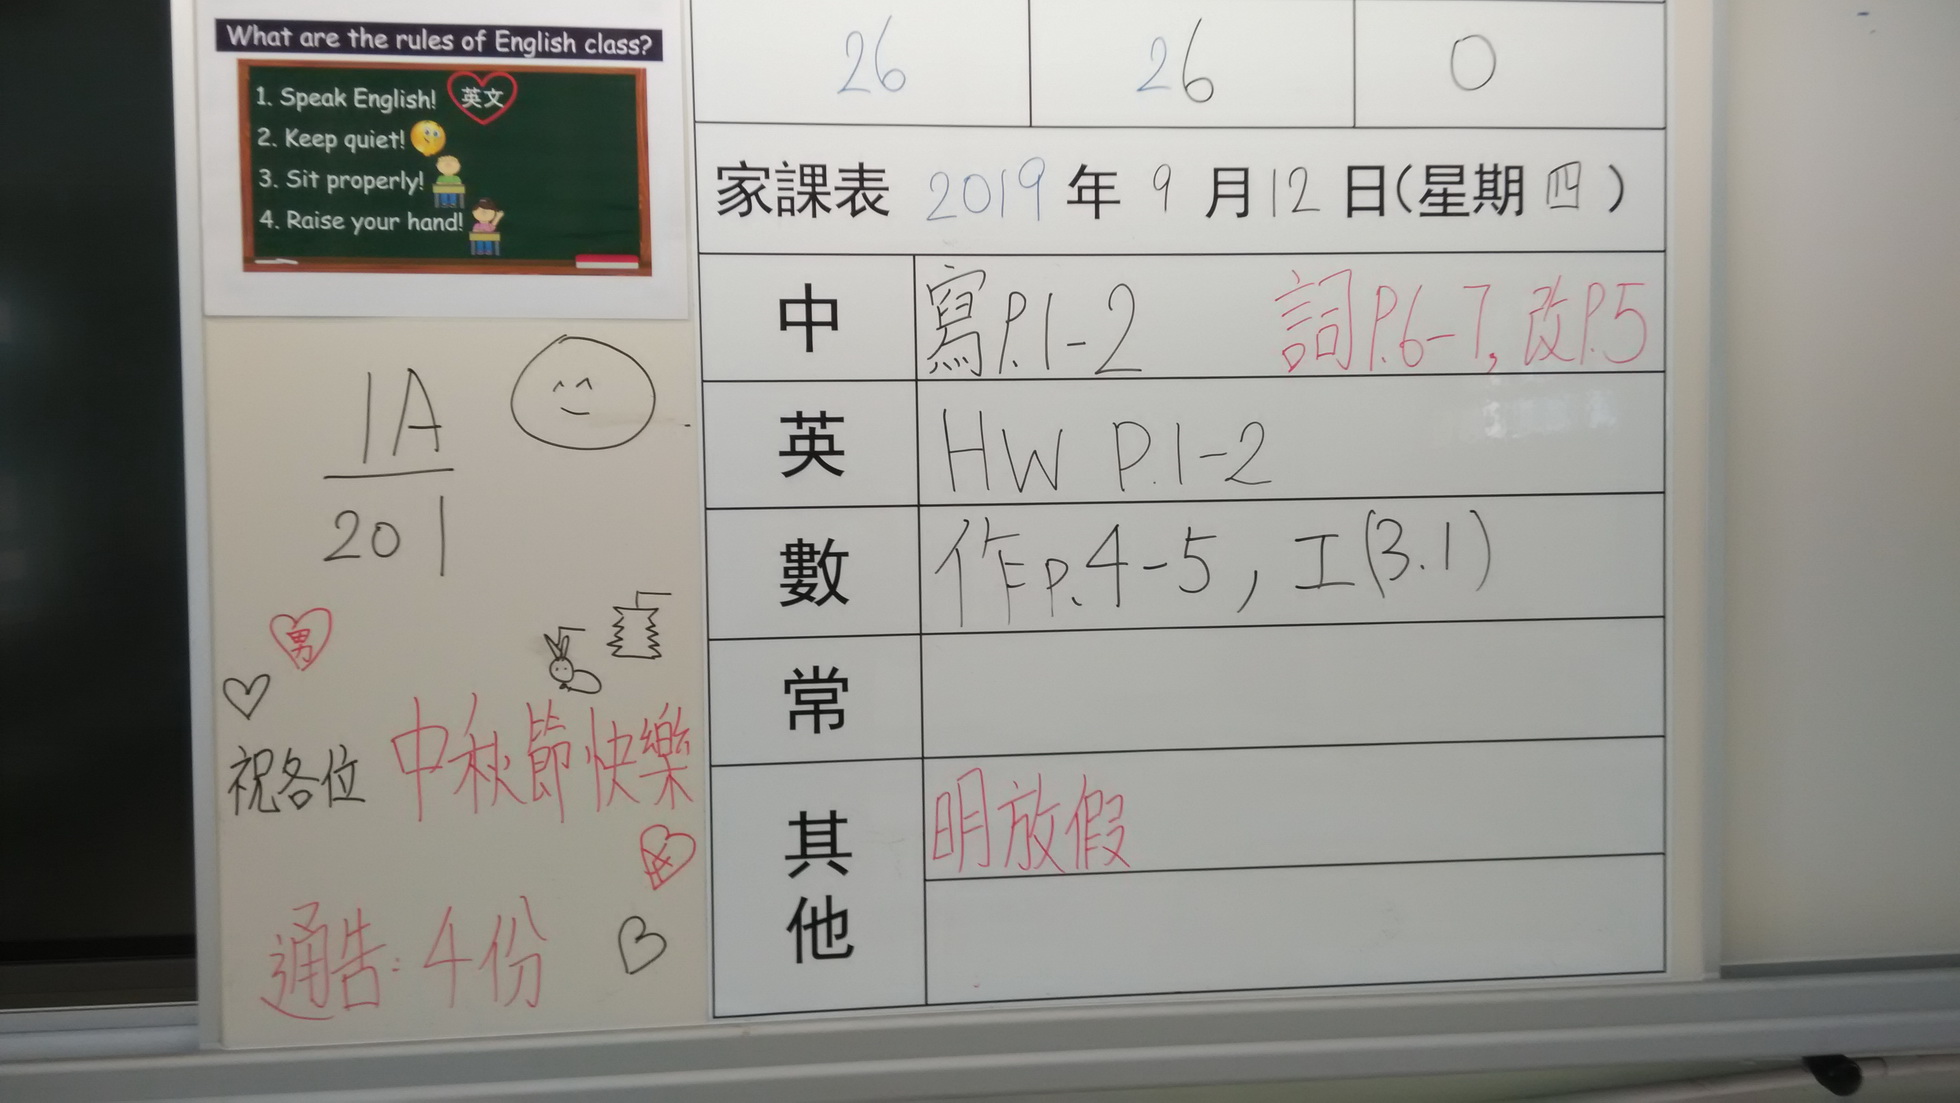 What are the rules of English class?
1. Speak English! 英文
2. Keep quiet!
3. Sit properly!
4. Raise your hand!
1A
201
男
祝各位 中秋節快樂
通告：4份
26 26 0
家課表 2019年9月12日(星期四)
中 寫P.1-2 詞P.6-7, 改P.5
英 HW P.1-2
數 作p.4-5, 工(3.1)
常
其他 明放假